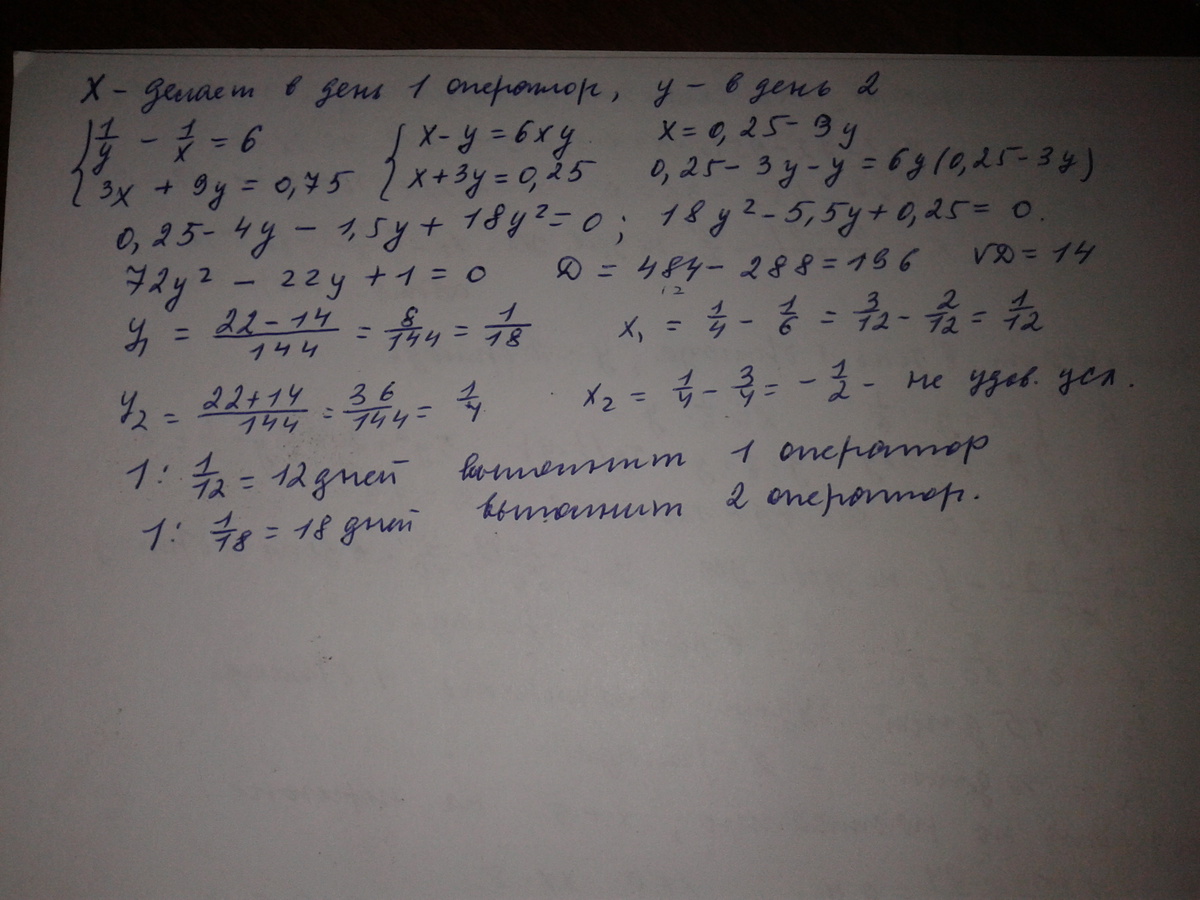 X - делает в день 1 оператор, y - в день 2
{ 1/y - 1/x = 6 { x - y = 6xy x = 0,25 - 3y
3x + 9y = 0,75 x + 3y = 0,25 0,25 - 3y - y = 6y(0,25 - 3y)
0,25 - 4y - 1,5y + 18y² = 0; 18y² - 5,5y + 0,25 = 0.
72y² - 22y + 1 = 0 D = 484 - 288 = 196 √D = 14
y₁ = (22 - 14)/144 = 8/144 = 1/18 x₁ = 1/4 - 1/6 = 3/12 - 2/12 = 1/12
y₂ = (22 + 14)/144 = 36/144 = 1/4 x₂ = 1/4 - 3/4 = - 1/2 - не удов. усл.
1 : 1/12 = 12 дней выполнит 1 оператор
1 : 1/18 = 18 дней выполнит 2 оператор.